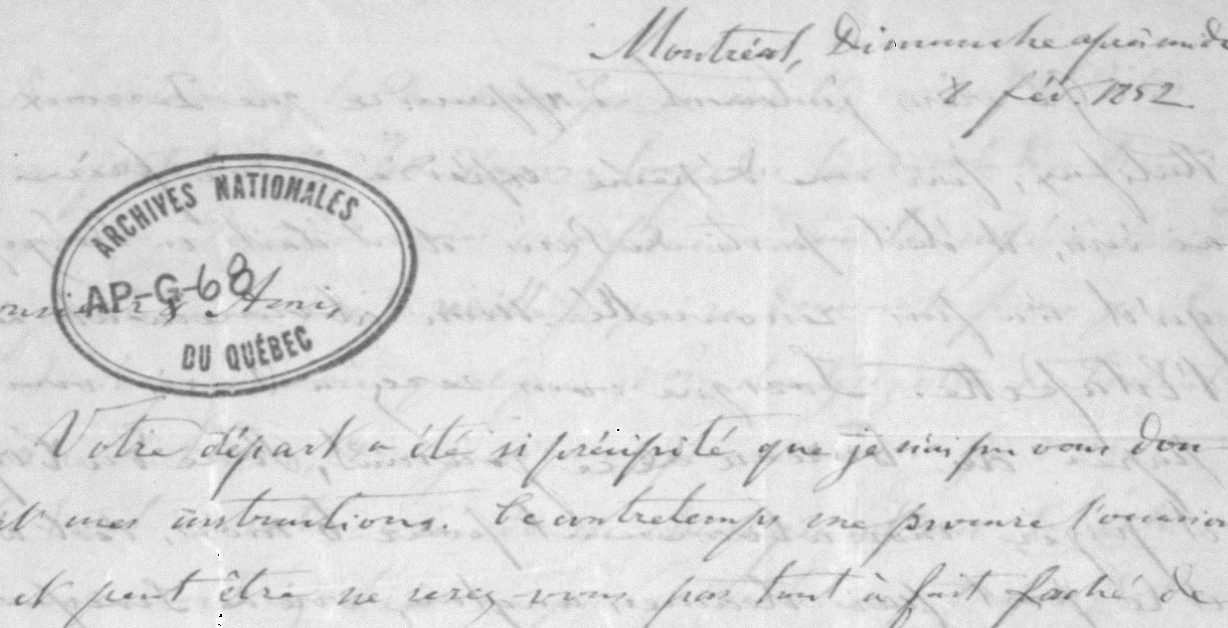 Montréal, Dimanche après midi
8 fév. 1852
ARCHIVES NATIONALES
AP-G-68
DU QUÉBEC
& Ami,
Votre départ a été si précipité que je n'ai pu vous don
mes instructions. Ce contretemps me procure l'occasion
et peut être ne serez-vous pas tout à fait faché de